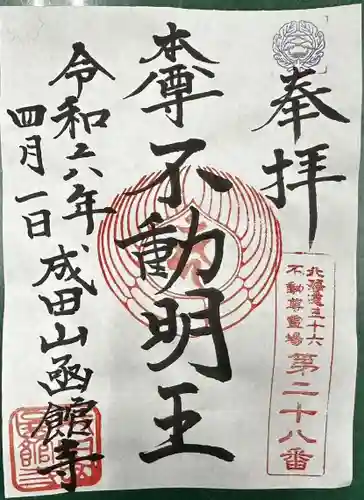 奉拝
北海道三十六
不動尊霊場
第二十八番
本尊
不動明王
令和六年
四月一日
成田山函館寺